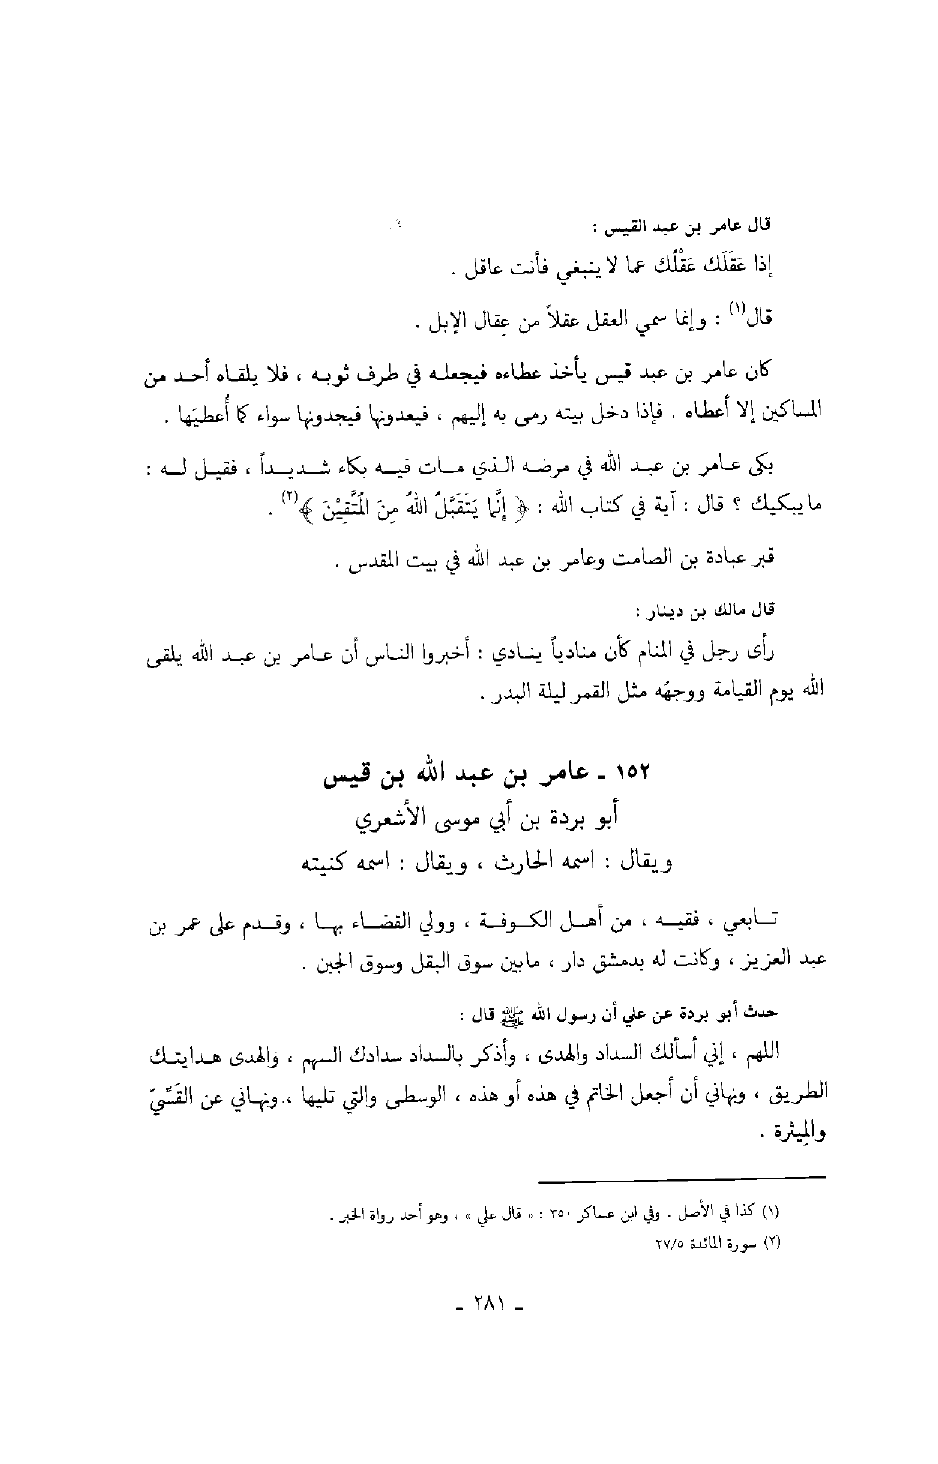 قال عامر بن عبد القيس :
إذا عَقَلَك عَقْلُك عما لا ينبغي فأنت عاقل .
قال(١) : وإنما سمي العقل عقلاً من عِقال الإبل .
كان عامر بن عبد قيس يأخذ عطاءه فيجعله في طرف ثوبه ، فلا يلقاه أحد من
المساكين إلا أعطاه . فإذا دخل بيته رمى به إليهم ، فيعدونها فيجدونها سواء كما أُعطيَها .
بكى عامر بن عبد الله في مرضه الذي مات فيه بكاء شديداً ، فقيل له :
ما يبكيك ؟ قال : آية في كتاب الله : ﴿ إنَّما يَتَقَبَّلُ اللهُ مِنَ المُتَّقِيْنَ ﴾(٢) .
قبر عبادة بن الصامت وعامر بن عبد الله في بيت المقدس .
قال مالك بن دينار :
رأى رجل في المنام كأن منادياً ينادي : أخبروا الناس أن عامر بن عبد الله يلقى
الله يوم القيامة ووجهُه مثل القمر ليلة البدر .
١٥٢ ـ عامر بن عبد الله بن قيس
أبو بردة بن أبي موسى الأشعري
ويقال : اسمه الحارث ، ويقال : اسمه كنيته
تابعي ، فقيه ، من أهل الكوفة ، وولي القضاء بها ، وقدم على عمر بن
عبد العزيز ، وكانت له بدمشق دار ، مابين سوق البقل وسوق الجبن .
حدث أبو بردة عن علي أن رسول الله ﷺ قال :
اللهم ، إني أسألك السداد والهدى ، وأذكر بالسداد سدادك السهم ، والهدى هدايتك
الطريق ، ونهاني أن أجعل الخاتم في هذه أو هذه ، الوسطى والتي تليها ، ونهاني عن القَسِّيّ
والمِيثرة .
(١) كذا في الأصل . وفي ابن عساكر ٣٥٠ : « قال علي » ، وهو أحد رواة الخبر .
(٢) سورة المائدة ٢٧/٥
ـ ٢٨١ ـ